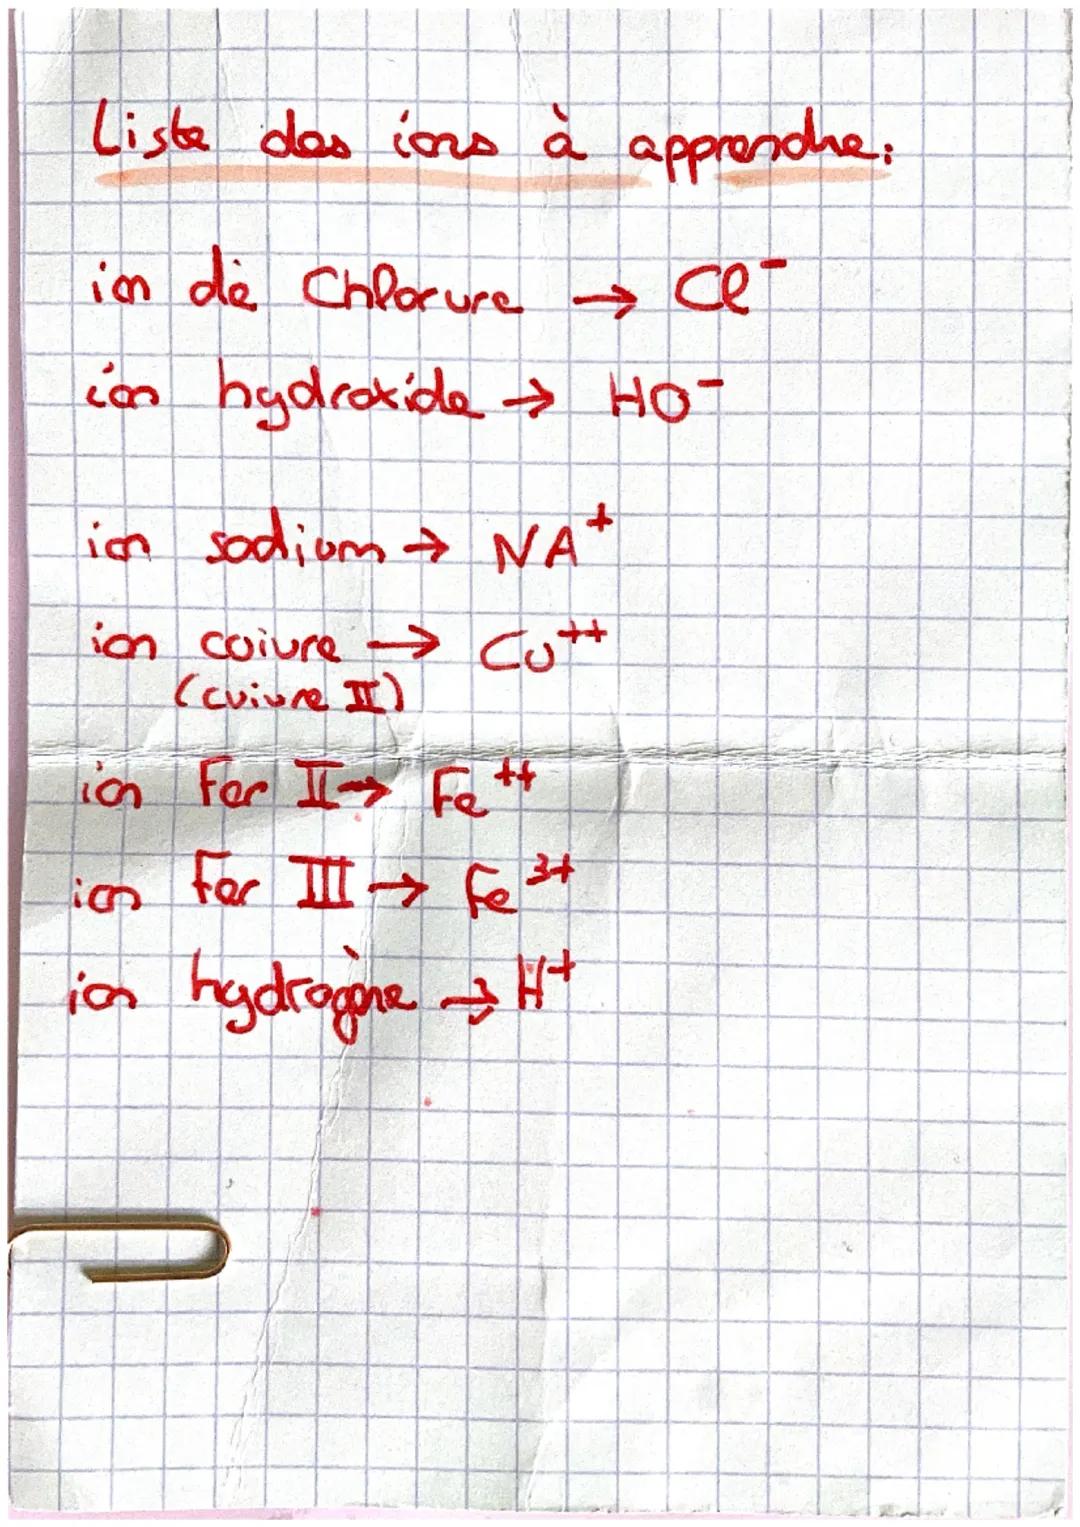 Liste des ions à apprendre:
ion de Chlorure → Cl⁻
ion hydroxide → HO⁻
ion sodium → NA⁺
ion cuivre → Cu⁺⁺
(cuivre II)
ion Fer II → Fe⁺⁺
ion Fer III → Fe³⁺
ion hydrogène → H⁺